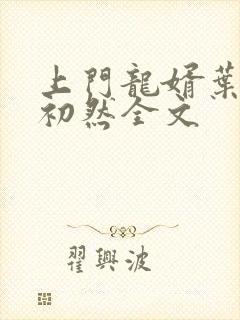 上門龍婿葉
初然全文
翟興波